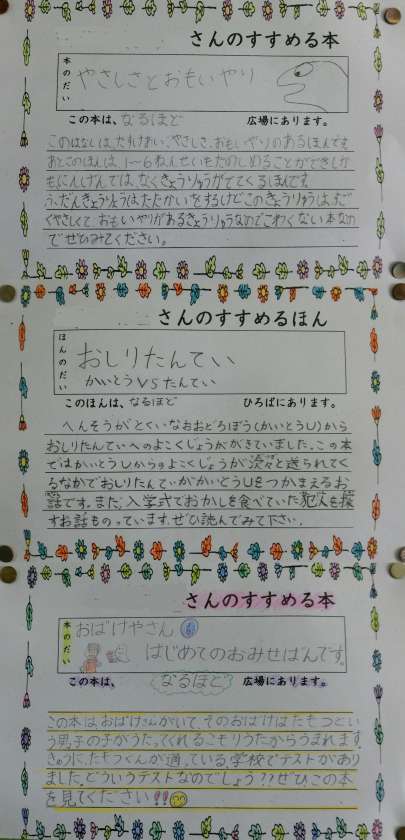 さんのすすめる本
本のだい
やさしさとおもいやり
この本は、なるほど 広場にあります。
このはなしは、たすけあい、やさしさ、おもいやりのあるほんです。
あとこのほんは、1~6ねんせいもたのしめることができしか
もにんげんでは、なくきょうりゅうがでてくるほんです。
ふだんきょうりゅうはたたかいをするけどこのきょうりゅうは、だ
くやさしくて、おもいやりがあるきょうりゅうなのでこわくない本なの
でぜひみてください。
さんのすすめるほん
ほんのだい
おしりたんてい
かいとうVSたんてい
このほんは、なるほど ひろばにあります。
へんそうがとくいなおおどろぼう(かいとうU)から
おしりたんていへのよこくじょうがきていました。この本
ではかいとうUからのよこくじょうが次々と送られてく
るなかでおしりたんていがかいとうUをつかまえるお
話です。また、入学式でおかしを食べていた犯人を探
すお話ものっています。ぜひ読んでみて下さい。
さんのすすめる本
本のだい
おばけやさん 6
はじめてのおみせばんです。
この本は、なるほど 広場にあります。
この本はおばけさんがいて、そのおばけはたもつとい
う男子の子がうたってくれるこもりうたからうまれます。
きゅうに、たもつくんが通っている学校でテストがあり
ました。どういうテストなのでしょう??ぜひこの本
を見てください!!